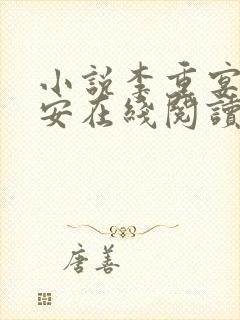 小說李重宴
安在綫閱讀
唐善